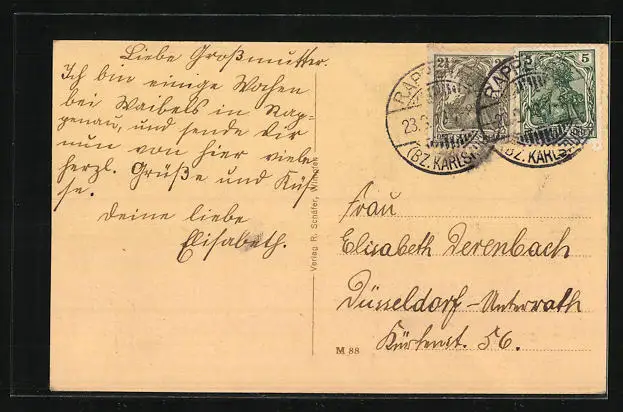 Liebe Großmutter.
Ich bin einige Wochen
bei Waibels in Rap-
penau, und sende dir
nun von hier viele
herzl. Grüße und Küs-
se.
Deine liebe
Elisabeth.
Verlag R. Schäfer, Wimpfen
M 88
2½
5
RAPP
23.
(BZ. KARLS
RAPPE
(BZ. KARLSR
Frau
Elisabeth Derenbach
Düsseldorf-Unterrath
Kürtenst. 56.